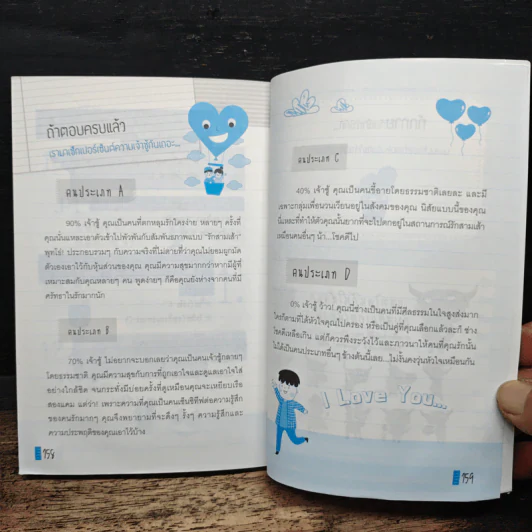 ถ้าตอบครบแล้ว
เรามาเช็กเปอร์เซ็นต์ความเจ้าชู้กันเถอะ...
คนประเภท A
90% เจ้าชู้ คุณเป็นคนที่ตกหลุมรักใครง่าย หลายๆ ครั้งที่
คุณนั่นแหละเอาตัวเข้าไปพัวพันกับสัมพันธภาพแบบ “รักสามเส้า”
พุทโธ่! ประกอบรวมๆ กับความจริงที่ไม่ตายที่ว่าคุณไม่ยอมผูกมัด
ตัวเองเอาไว้กับหุ้นส่วนของคุณ คุณมีความสุขมากกว่าหากมีผู้ที่
เหมาะสมกับคุณหลายๆ คน พูดง่ายๆ ก็คือคุณยังห่างจากคนที่มี
ศรัทธาในรักมากนัก
คนประเภท B
70% เจ้าชู้ ไม่อยากจะบอกเลยว่าคุณเป็นคนเจ้าชู้กลายๆ
โดยธรรมชาติ คุณมีความสุขกับการที่ถูกเอาใจและดูแลเอาใจใส่
อย่างใกล้ชิด จนกระทั่งมีบ่อยครั้งที่ดูเหมือนคุณจะเหยียบเรือ
สองแคม แต่ว่า! เพราะความที่คุณเป็นคนเซ้นซิทีฟต่อความรู้สึก
ของคนรักมากๆ คุณจึงพยายามที่จะดึงๆ รั้งๆ ความรู้สึกและ
ความประพฤติของคุณเอาไว้บ้าง
158
คนประเภท C
40% เจ้าชู้ คุณเป็นคนขี้อายโดยธรรมชาติเลยละ และมี
เฉพาะกลุ่มเพื่อนวนเวียนอยู่ในสังคมของคุณ นิสัยแบบนี้ของคุณ
นี่แหละที่ทำให้ตัวคุณนั้นยากที่จะไปตกอยู่ในสถานการณ์รักสามเส้า
เหมือนคนอื่นๆ น้า...โชคดีไป
คนประเภท D
0% เจ้าชู้ ว้าว! คุณนี่ช่างเป็นคนที่มีศีลธรรมในใจสูงส่งมาก
ใครก็ตามที่ได้หัวใจคุณไปครอง หรือเป็นคู่ที่คุณเลือกแล้วละก็ ช่าง
โชคดีเหลือเกิน แต่ก็ควรพึงระวังไว้และภาวนาให้คนที่คุณรักนั้น
ไม่ได้เป็นคนประเภทอื่นๆ ข้างต้นนี้เลย...ไม่งั้นคงวุ่นหัวใจเหมือนกัน
I Love You...
159